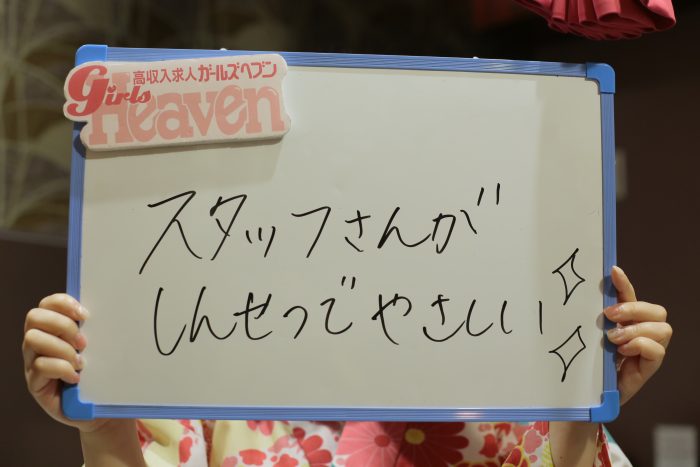 高収入求人ガールズヘブン
Girls Heaven
スタッフさんが
しんせつでやさしい